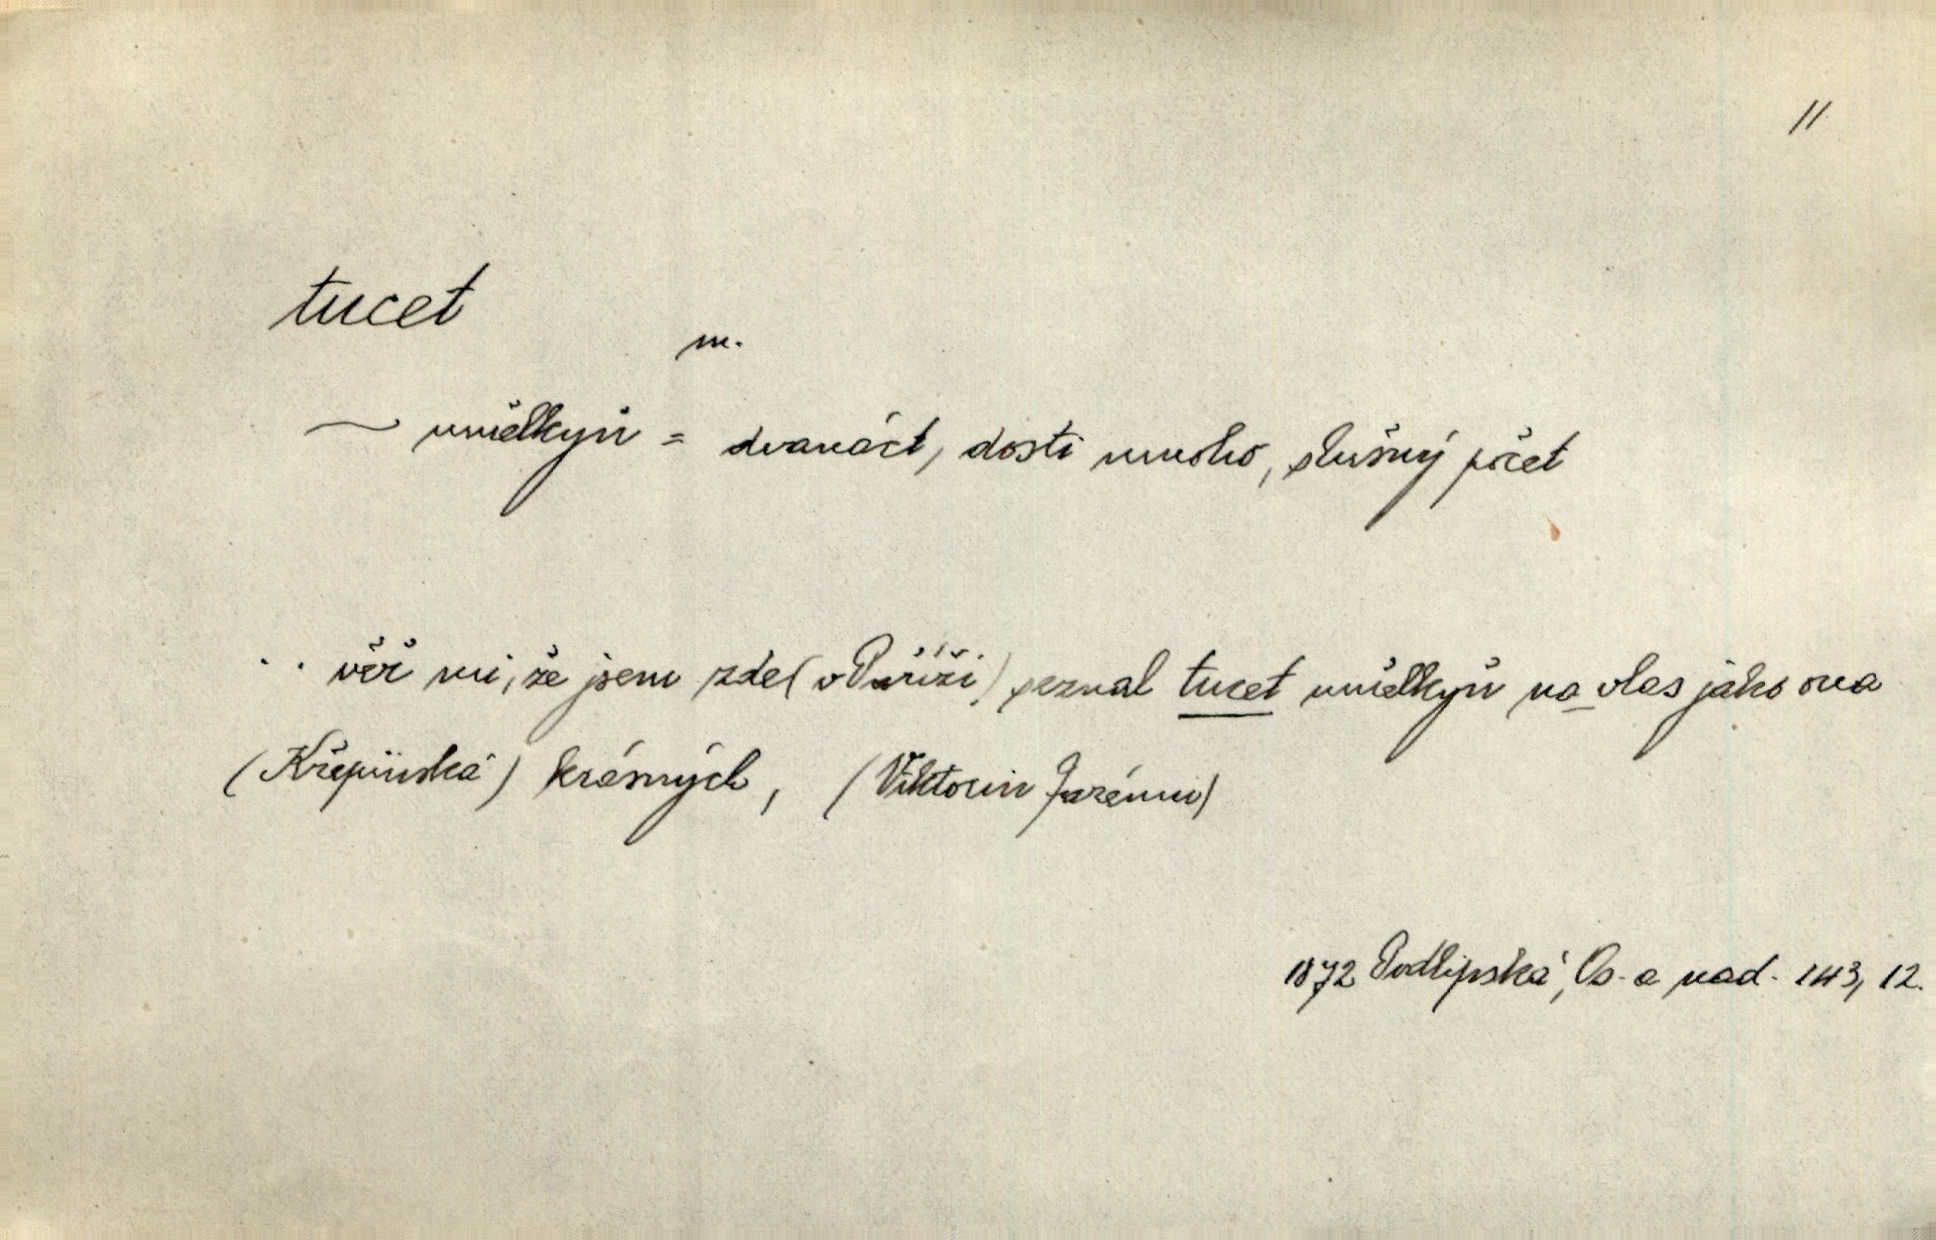 11
tucet
m.
~ umělkyň = dvanáct, dosti mnoho, slušný počet
.. věř mi, že jsem zde (v Paříži) seznal tucet umělkyň na vlas jako ona
krásných, (Viktorin
1872 Podlipská, Os. a nad. 143, 12.